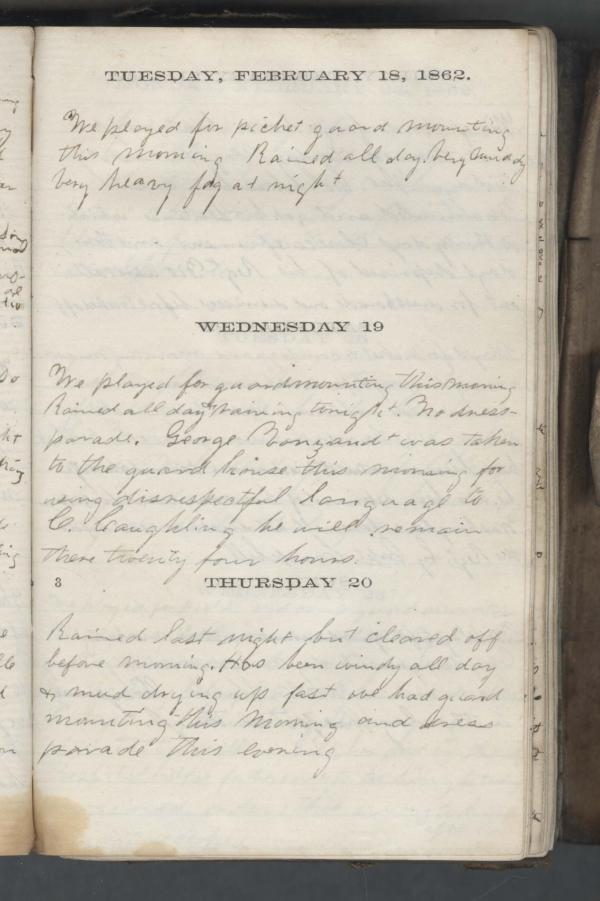 TUESDAY, FEBRUARY 18, 1862.
We played for picket guard mounting
this morning Rained all day. Very muddy
very heavy fog at night
WEDNESDAY 19
We played for guardmounting this morning
Rained all day & raining tonight. No dress-
parade. George was taken
to the guard house this morning for
using disrespectful language to
C. Caughling he will remain
there twenty four hours.
3 THURSDAY 20
Rained last night but cleared off
before morning. Has been windy all day
& mud drying up fast we had guard
mounting this morning and dress
parade this evening